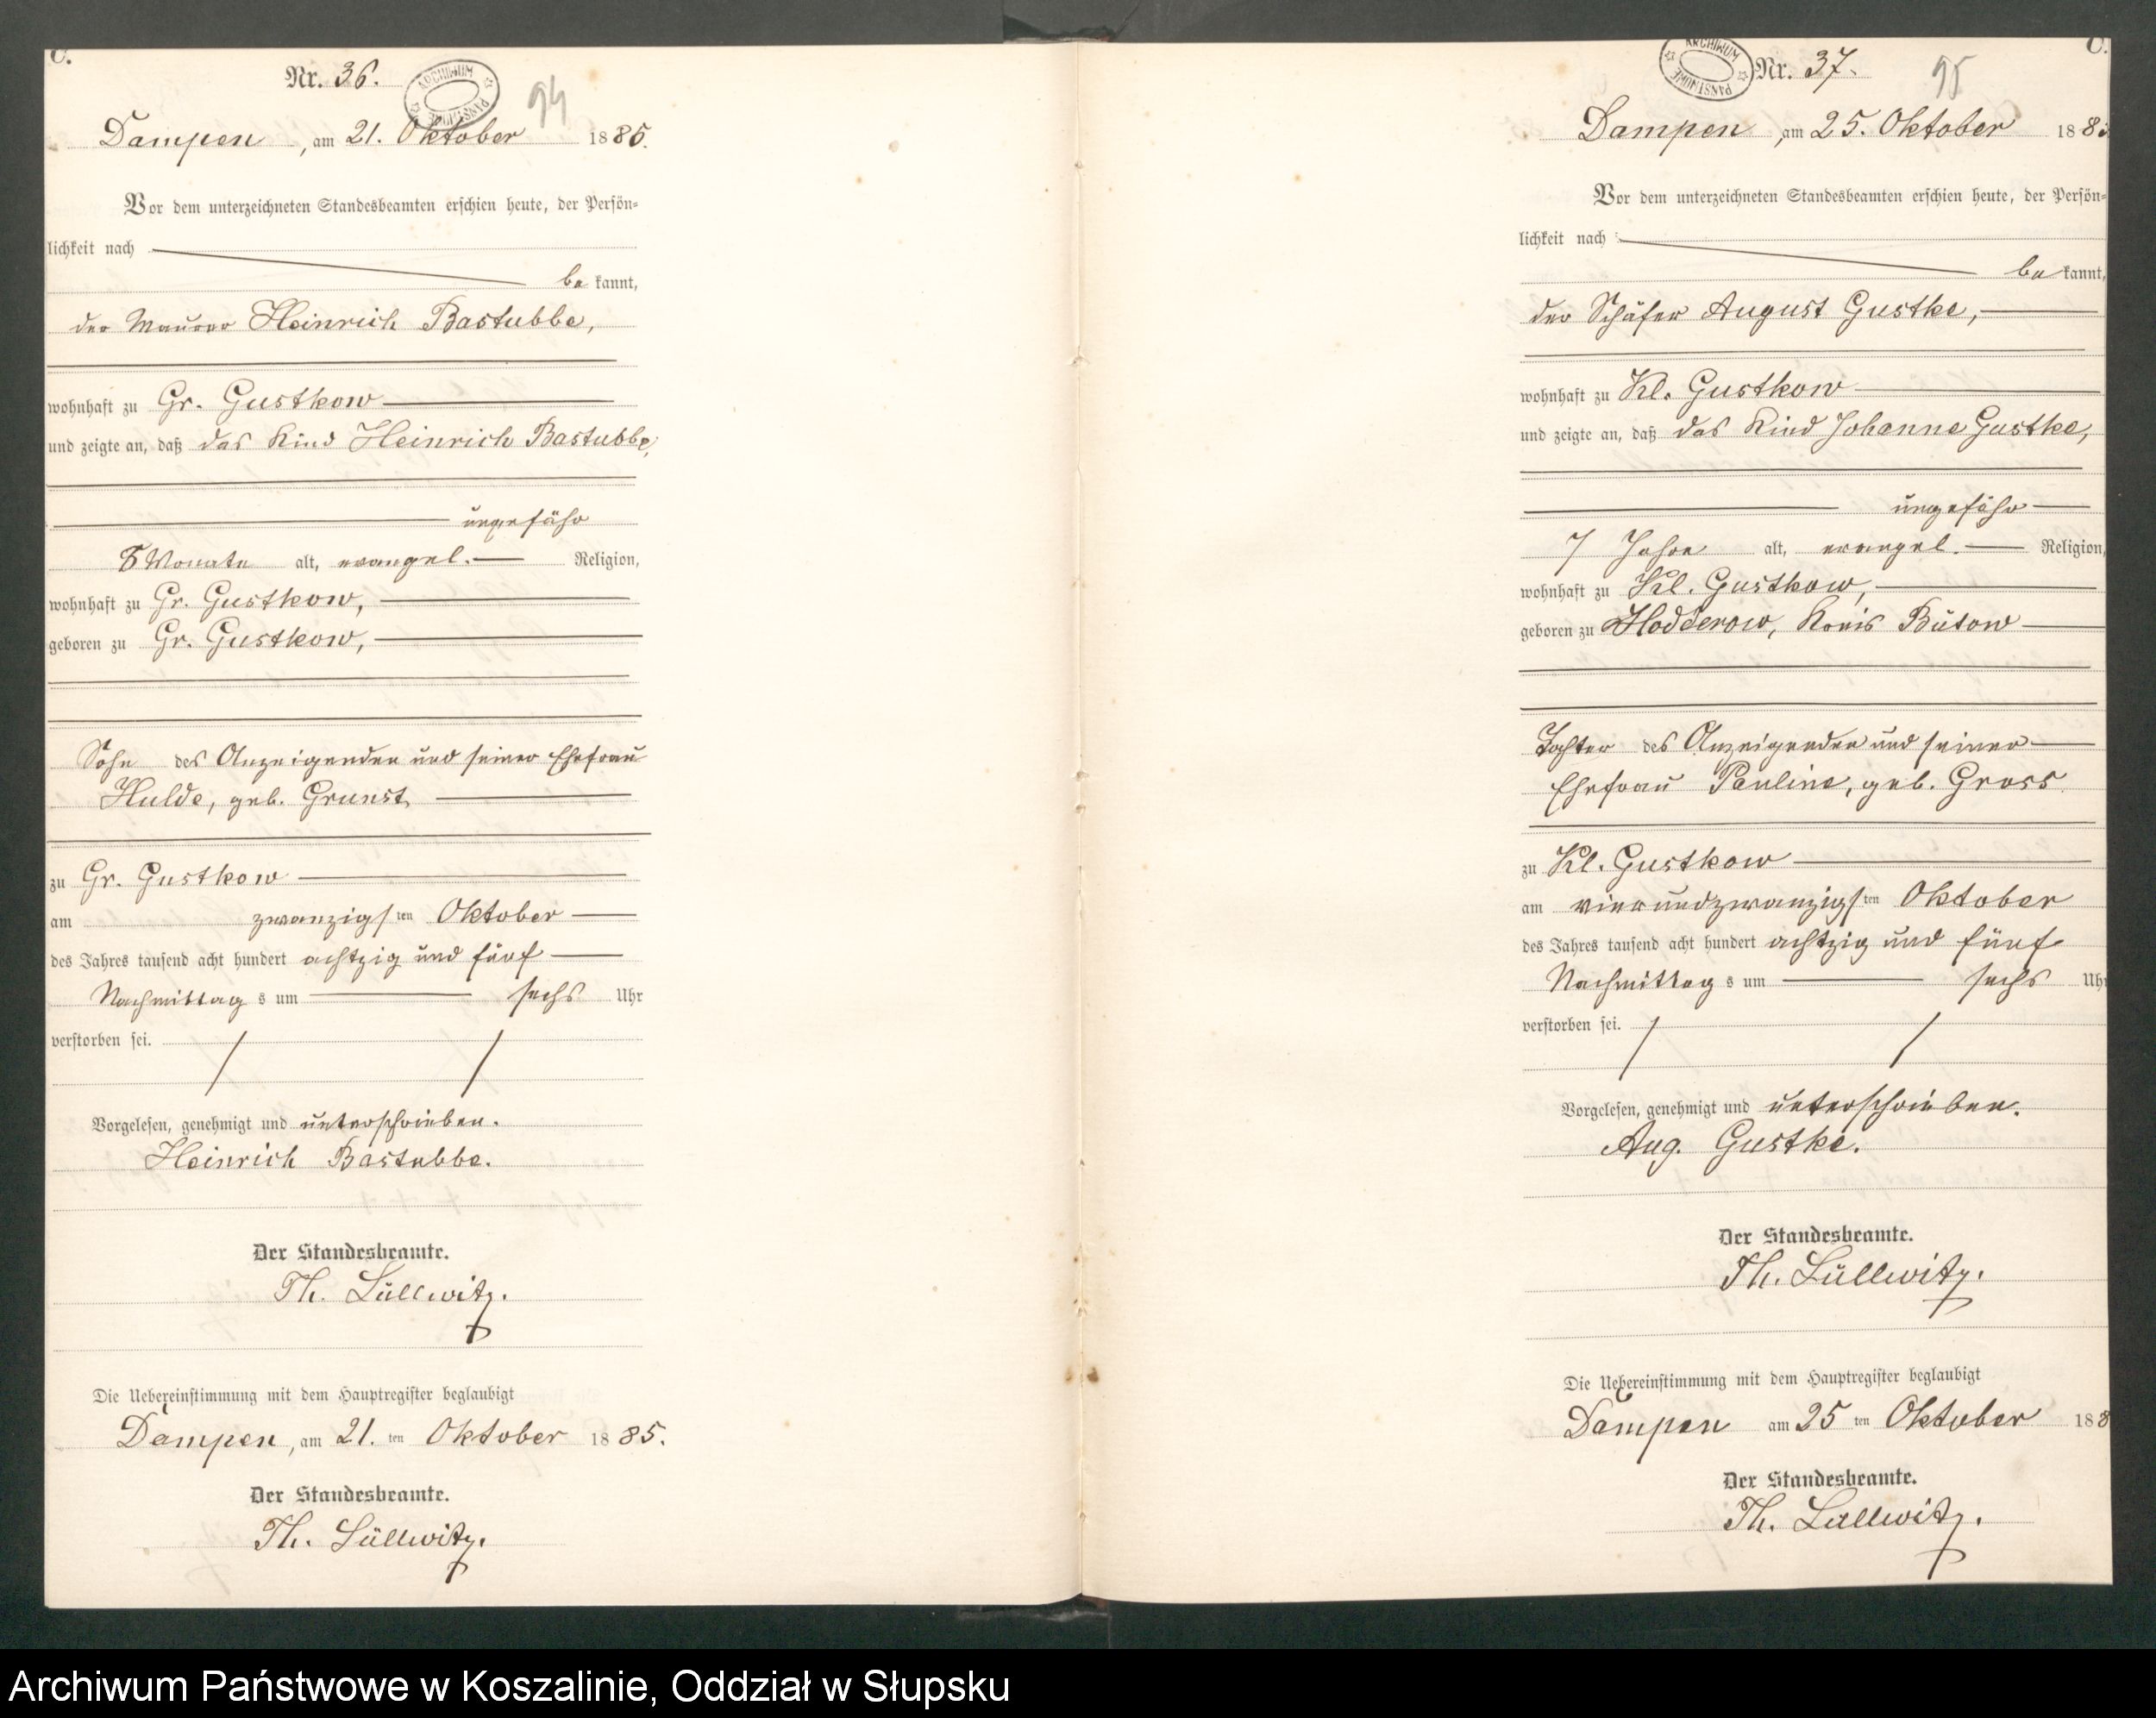 C.
Nr. 36.
ARCHIWUM PAŃSTWOWE
94
Dampen, am 21. Oktober 1885.
Vor dem unterzeichneten Standesbeamten erschien heute, der Persön-
lichkeit nach
be kannt,
der Maurer Heinrich Bastubbe,
wohnhaft zu Gr. Gustkow
und zeigte an, daß das Kind Heinrich Bastubbe,
ungefähr
8 Monate alt, evangel. Religion,
wohnhaft zu Gr. Gustkow,
geboren zu Gr. Gustkow,
Sohn des Anzeigenden und seiner Ehefrau
Hulde, geb. Grunst,
zu Gr. Gustkow
am zwanzigsten Oktober
des Jahres tausend acht hundert achtzig und fünf
Nachmittag s um sechs Uhr
verstorben sei.
Vorgelesen, genehmigt und unterschrieben.
Heinrich Bastubbe.
Der Standesbeamte.
Th. Lüllwitz.
Die Uebereinstimmung mit dem Hauptregister beglaubigt
Dampen, am 21. ten Oktober 1885.
Der Standesbeamte.
Th. Lüllwitz.
C.
ARCHIWUM PAŃSTWOWE
Nr. 37.
95
Dampen, am 25. Oktober 188
Vor dem unterzeichneten Standesbeamten erschien heute, der Persön-
lichkeit nach
be kannt,
der Schäfer August Gustke,
wohnhaft zu Kl. Gustkow
und zeigte an, daß das Kind Johanne Gustke,
ungefähr
7 Jahre alt, evangel. Religion,
wohnhaft zu Kl. Gustkow,
geboren zu Hodderow, Kreis Bütow
Tochter des Anzeigenden und seiner
Ehefrau Pauline, geb. Gross
zu Kl. Gustkow
am vierundzwanzigsten Oktober
des Jahres tausend acht hundert achtzig und fünf
Nachmittag s um sechs Uhr
verstorben sei.
Vorgelesen, genehmigt und unterschrieben.
Aug. Gustke.
Der Standesbeamte.
Th. Lüllwitz.
Die Uebereinstimmung mit dem Hauptregister beglaubigt
Dampen am 25 ten Oktober 188
Der Standesbeamte.
Th. Lüllwitz.
Archiwum Państwowe w Koszalinie, Oddział w Słupsku